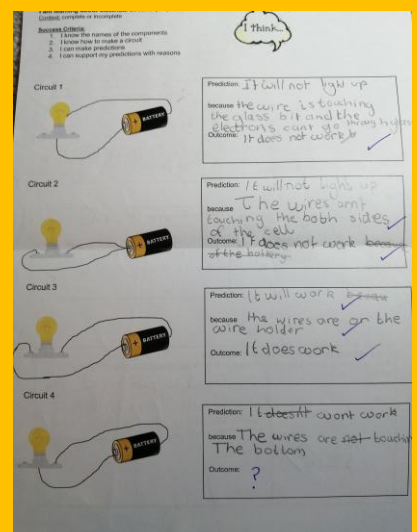 Context: complete or incomplete
Success Criteria:
1. I know the names of the components
2. I know how to make a circuit
3. I can make predictions
4. I can support my predictions with reasons
I think...
Circuit 1
BATTERY
Prediction: It will not light up
because the wire is touching
the glass bit and the
electrons cant go through
Outcome: It does not work
Circuit 2
BATTERY
Prediction: It will not light up
because The wires arnt
touching the both sides
of the cell
Outcome: It does not work
of the battery.
Circuit 3
BATTERY
Prediction: It will work
because the wires are on the
wire holder
Outcome: It does work
Circuit 4
BATTERY
Prediction: It doesnt wont work
because The wires are not
The bottom
Outcome:
?